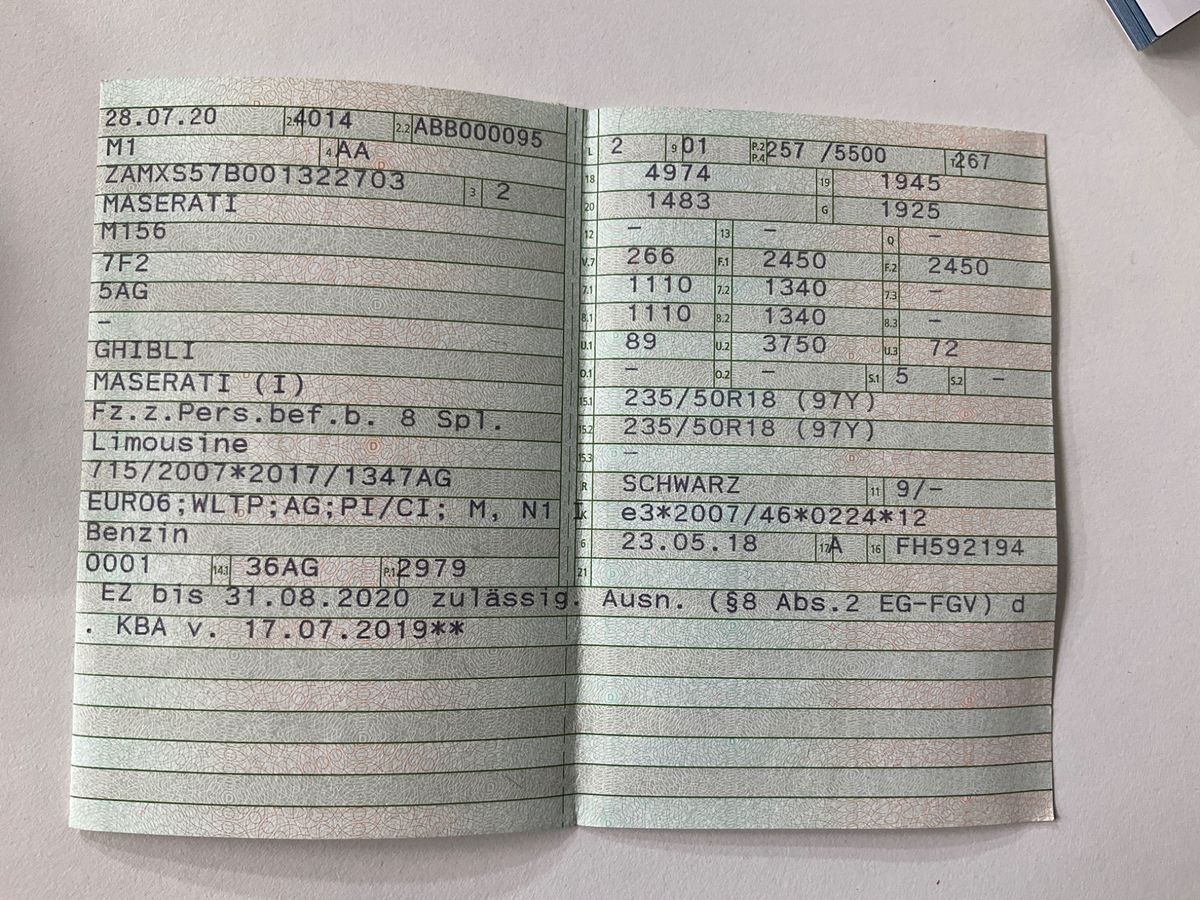 28.07.20 2.1 4014 2.2 ABB000095
M1 4 AA
ZAMXS57B001322703 3 2
MASERATI
M156
7F2
5AG
–
GHIBLI
MASERATI (I)
Fz.z.Pers.bef.b. 8 Spl.
Limousine
715/2007*2017/1347AG
EURO6;WLTP;AG;PI/CI; M, N1 I
Benzin
0001 14.1 36AG P.1 2979
L 2 9 01 P.2 P.4 257 /5500 T 267
18 4974 19 1945
20 1483 G 1925
12 – 13 – Q –
V.7 266 F.1 2450 F.2 2450
7.1 1110 7.2 1340 7.3 –
8.1 1110 8.2 1340 8.3 –
U.1 89 U.2 3750 U.3 72
O.1 – O.2 – S.1 5 S.2 –
15.1 235/50R18 (97Y)
15.2 235/50R18 (97Y)
15.3 –
R SCHWARZ 11 9/–
K e3*2007/46*0224*12
6 23.05.18 17 A 16 FH592194
21
EZ bis 31.08.2020 zulässig. Ausn. (§8 Abs.2 EG-FGV) d
. KBA v. 17.07.2019**